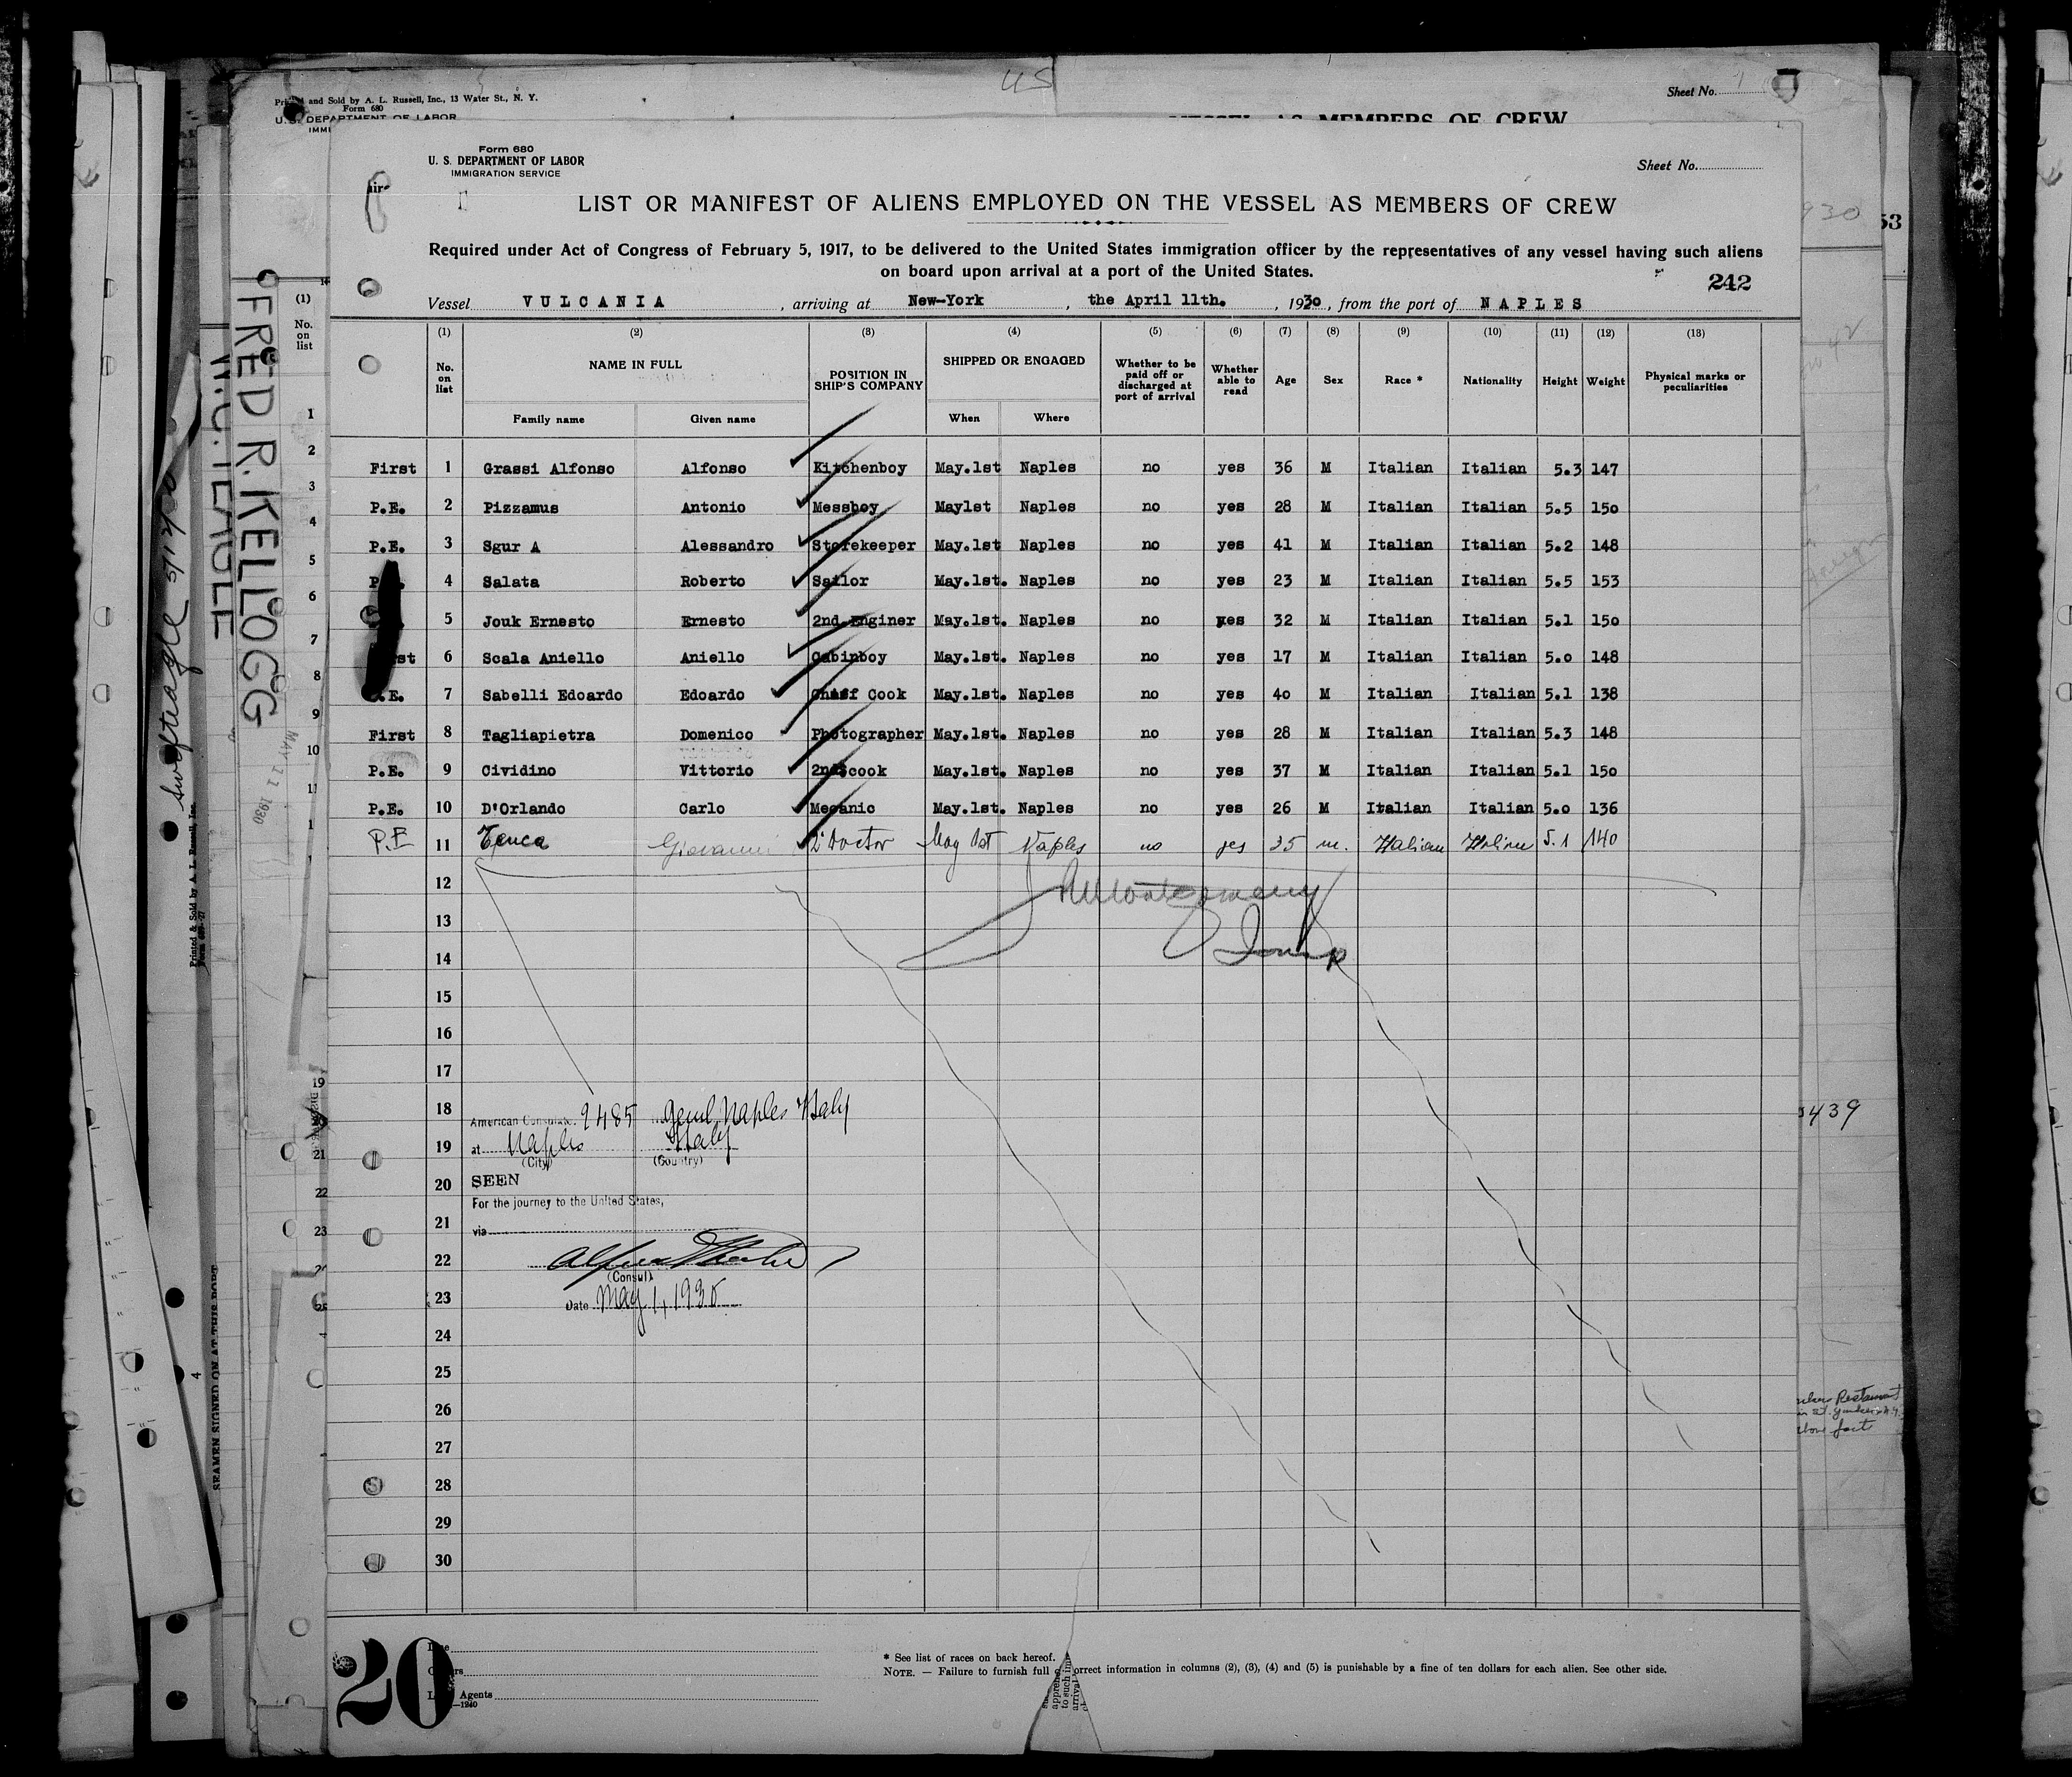 US
Printed and Sold by A. L. Russell, Inc., 13 Water St., N. Y.
Form 680
U. S. DEPARTMENT OF LABOR
Sheet No. 1
MEMBERS OF CREW
Form 680
U. S. DEPARTMENT OF LABOR
IMMIGRATION SERVICE
Sheet No.
LIST OR MANIFEST OF ALIENS EMPLOYED ON THE VESSEL AS MEMBERS OF CREW
Required under Act of Congress of February 5, 1917, to be delivered to the United States immigration officer by the representatives of any vessel having such aliens
on board upon arrival at a port of the United States.
242
Vessel VULCANIA, arriving at New-York, the April 11th., 1930, from the port of NAPLES
(1) (2) (3) (4) (5) (6) (7) (8) (9) (10) (11) (12) (13)
No. on list NAME IN FULL Family name Given name POSITION IN SHIP'S COMPANY SHIPPED OR ENGAGED When Where Whether to be paid off or discharged at port of arrival Whether able to read Age Sex Race * Nationality Height Weight Physical marks or peculiarities
First 1 Grassi Alfonso Alfonso Kitchenboy May.1st Naples no yes 36 M Italian Italian 5.3 147
P.E. 2 Pizzamus Antonio Messboy May1st Naples no yes 28 M Italian Italian 5.5 150
P.E. 3 Sgur A Alessandro Storekeeper May.1st Naples no yes 41 M Italian Italian 5.2 148
4 Salata Roberto Sailor May.1st. Naples no yes 23 M Italian Italian 5.5 153
5 Jouk Ernesto Ernesto 2nd.Enginer May.1st. Naples no yes 32 M Italian Italian 5.1 150
st 6 Scala Aniello Aniello Cabinboy May.1st. Naples no yes 17 M Italian Italian 5.0 148
.E. 7 Sabelli Edoardo Edoardo Chief Cook May.1st. Naples no yes 40 M Italian Italian 5.1 138
First 8 Tagliapietra Domenico Photographer May.1st. Naples no yes 28 M Italian Italian 5.3 148
P.E. 9 Cividino Vittorio 2nd cook May.1st. Naples no yes 37 M Italian Italian 5.1 150
P.E. 10 D'Orlando Carlo Mecanic May.1st. Naples no yes 26 M Italian Italian 5.0 136
P.E 11 Tenca Giovanni 2° Doctor May 1st Naples no yes 35 m. Italian Italian 5.1 140
12
13
14
15
16
17
18
19
20
21
22
23
24
25
26
27
28
29
30
American Consulate 9485 Genl. Naples Italy
at Naples Italy
(City) (Country)
SEEN
For the journey to the United States,
via
(Consul)
Date May 1, 1930
20
Agents
* See list of races on back hereof.
NOTE. — Failure to furnish full correct information in columns (2), (3), (4) and (5) is punishable by a fine of ten dollars for each alien. See other side.
FRED R. KELLOGG
MAY 11 1930
Printed & Sold by A. L. Russell, Inc.
SEAMEN SIGNED ON AT THIS PORT
439
53